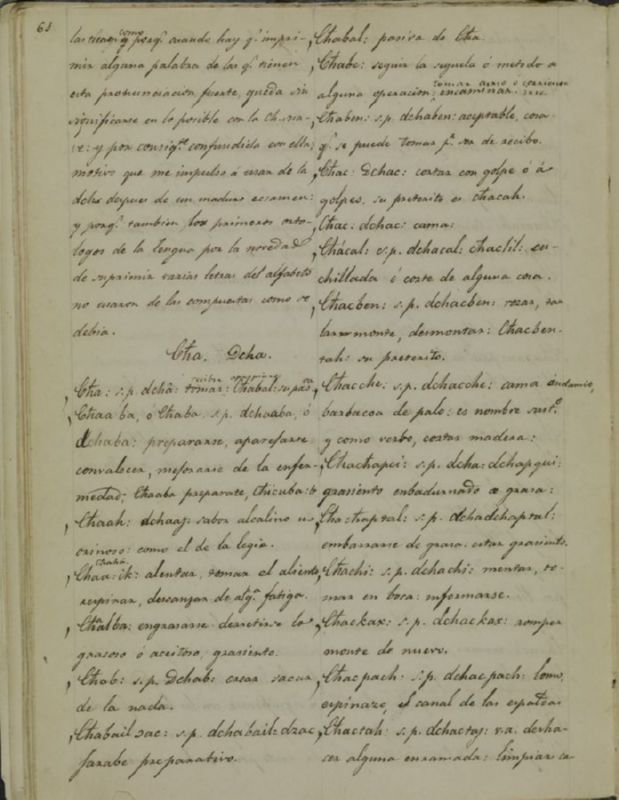 61
como
las tienen y porq.e cuando hay q.e impri-
mir alguna palabra de las q.e tienen
esta pronunciacion fuerte, queda sin
significarse en lo posible con la Ch. sua-
ve: y por consig.te confundida con ella;
motivo que me impulsó á usar de la
dcha despues de un maduro ecsamen:
y porq.e tambien los primeros orto-
logos de la lengua por la novedad
de suprimir varias letras del alfabeto
no usaron de las compuestas como se
debia.
Cħa. Dcha.
recibir
Cħa: s.p. dchâ: tomar: Cħabal: su pas.va
Cħaa ba, o Cħaba, s.p. dchaaba, ó
dchaba: prepararse, aparejarse
convalecer, mejorarse de la enfer-
medad; Cħaaba preparate, Cħicuba:
Cħaah: dchaaj: sabor alcalino u
orinoso: como el de la legia.
Cħaa-ik: alentar, tomar el aliento,
respirar, descanzar de alg.a fatiga.
Cħalba: engrasarse derretirse lo
grasoso ó aceitoso, grasiento.
Cħab: s.p. Dchab: crear sacar
de la nada.
Cħabail sac: s.p. dchabail: dzac,
jarabe preparativo.
Cħabal: pasiva de Cħa.
Cħabe: seguir la seguela ó metodo a
alguna operacion; encaminar.
Cħaben: s.p. dchaben: aceptable, cosa
q.e se puede tomar p.r ser de recibo.
Cħac: Dchac: cortar con golpe ó á
golpes, su preterito es cħacah.
Cħac: dchac: cama:
Cħácal: s.p. dchacal: cħaclil: cu-
chillada ó corte de alguna cosa.
Cħacben: s.p. dchacben: rozar, ta
lar monte, desmontar: Cħacben-
tah: su preterito.
Cħacche: s.p. dchacche: cama andamio,
barbacoa de palo: es nombre sust.o
y como verbo, cortar madera:
Cħacħapci: s.p. dcha: dchapqui:
grasiento embadurnado de grasa:
Cħacħaptal: s.p. dchadchaptal:
embarrarse de grasa. estar grasiento.
Cħachi: s.p. dchachi: mentar, to-
mar en boca: informarse.
Cħackax: s.p. dchackax: romper
monte de nuevo.
Cħacpach: s.p. dchacpach: lomo,
espinazo, el canal de las espaldas
Cħactah: s.p. dchactaj: v.a. desha-
cer alguna enramada: limpiar ca